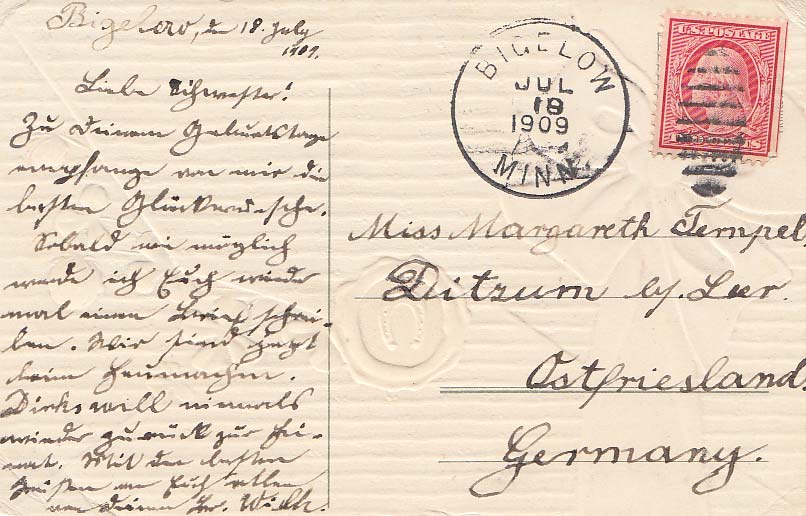 Bigelow, den 18. July
1909.
Liebe Schwester!
Zu deinem Geburtstage
empfange von mir die
besten Glückwünsche.
Sobald wie möglich
werde ich Euch wieder
mal einen Brief schrei-
ben. Wir sind jetzt
beim Heumachen.
Dirks will niemals
wieder zurück zur Hei-
mat. Mit den besten
Grüßen an Euch allen
von deinem Br. Wilh.
BIGELOW
JUL
18
1909
MINN.
U.S. POSTAGE
CENTS
Miss Margareth Tempel,
Ditzum b/ Leer.
Ostfriesland.
Germany.